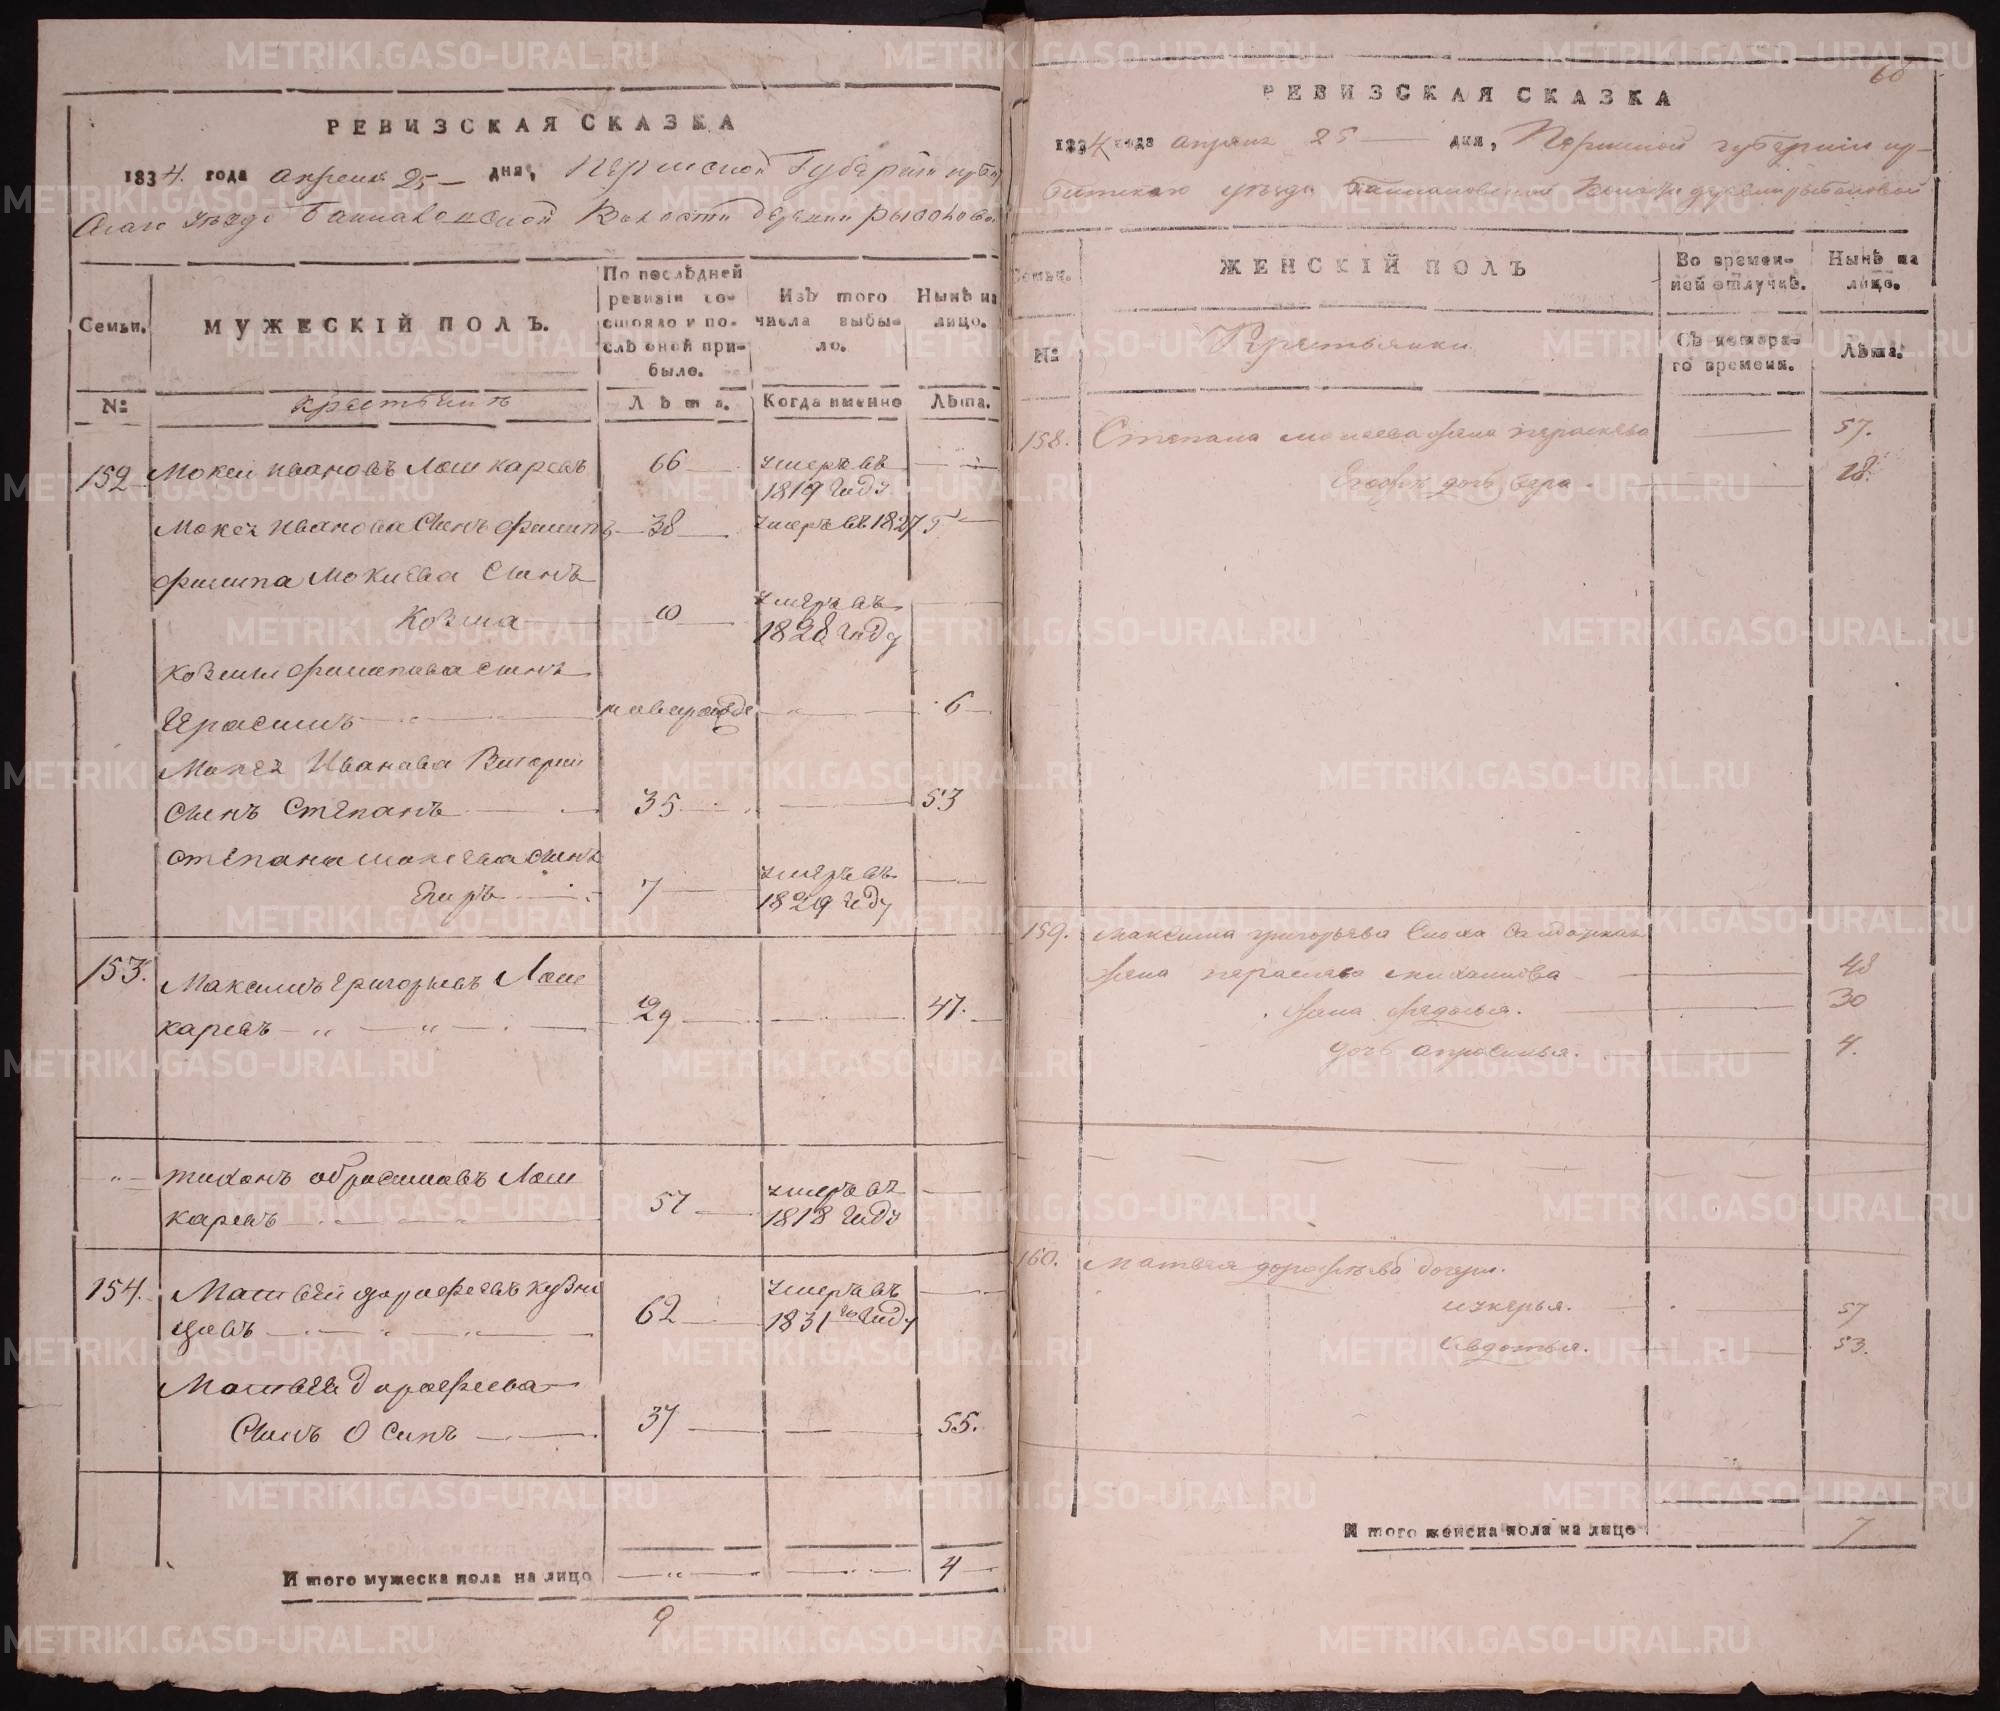 РЕВИЗСКАЯ СКАЗКА
1834. года апреля 25 дня, Пермской Губернии Ирбит
скаго уезда волости деревни
Семьи.
МУЖЕСКІЙ ПОЛЪ.
По послѣдней ревизіи состояло и послѣ оной прибыло.
Изъ того числа выбыло.
Нынѣ на лицо.
№
крестьянъ
Лѣта.
Когда именно
Лѣта.
152 Мокей Ивановъ Лошкаревъ 66 умеръ въ
1819 году
Мокея Иванова сынъ Филипъ 38 умеръ въ 1827 г
Филипа Мокиева сынъ
Козма 10 умеръ въ
1828 году
Козмы Филипова сынъ
Герасимъ 6
Мокея Иванова второй
сынъ Степанъ 35 53
Степана Мокеева сынъ
Егоръ 7 умеръ въ
1829 году
153. Максимъ Григорьевъ Лош
каревъ 29 47.
Тихонъ Обросимовъ Лош
каревъ 57 умеръ въ
1818 году
154. Матвей Дорофеевъ Кузне
цовъ 62 умеръ въ
1831 году
Матвея Дорофеева
сынъ Осипъ 37 55.
Итого мужеска пола на лицо 4
9
68
РЕВИЗСКАЯ СКАЗКА
1834 года апреля 25 дня, Пермской губернии Ир-
битскаго уезда волости деревни
Семьи.
ЖЕНСКІЙ ПОЛЪ
Во временной отлучкѣ.
Нынѣ на лицо.
№
Крестьянки.
Съ котораго времени.
Лѣта.
158. Степана Мокеева жена Парасковья 57.
дочь 18.
159. Максима Григорьева
жена Михайлова 48
жена Федосья. 30
дочь Апросинья. 4.
160. Матвея Дорофеева дочери.
Лукерья. 57
Авдотья. 53.
Итого женска пола на лицо 7
METRIKI.GASO-URAL.RU